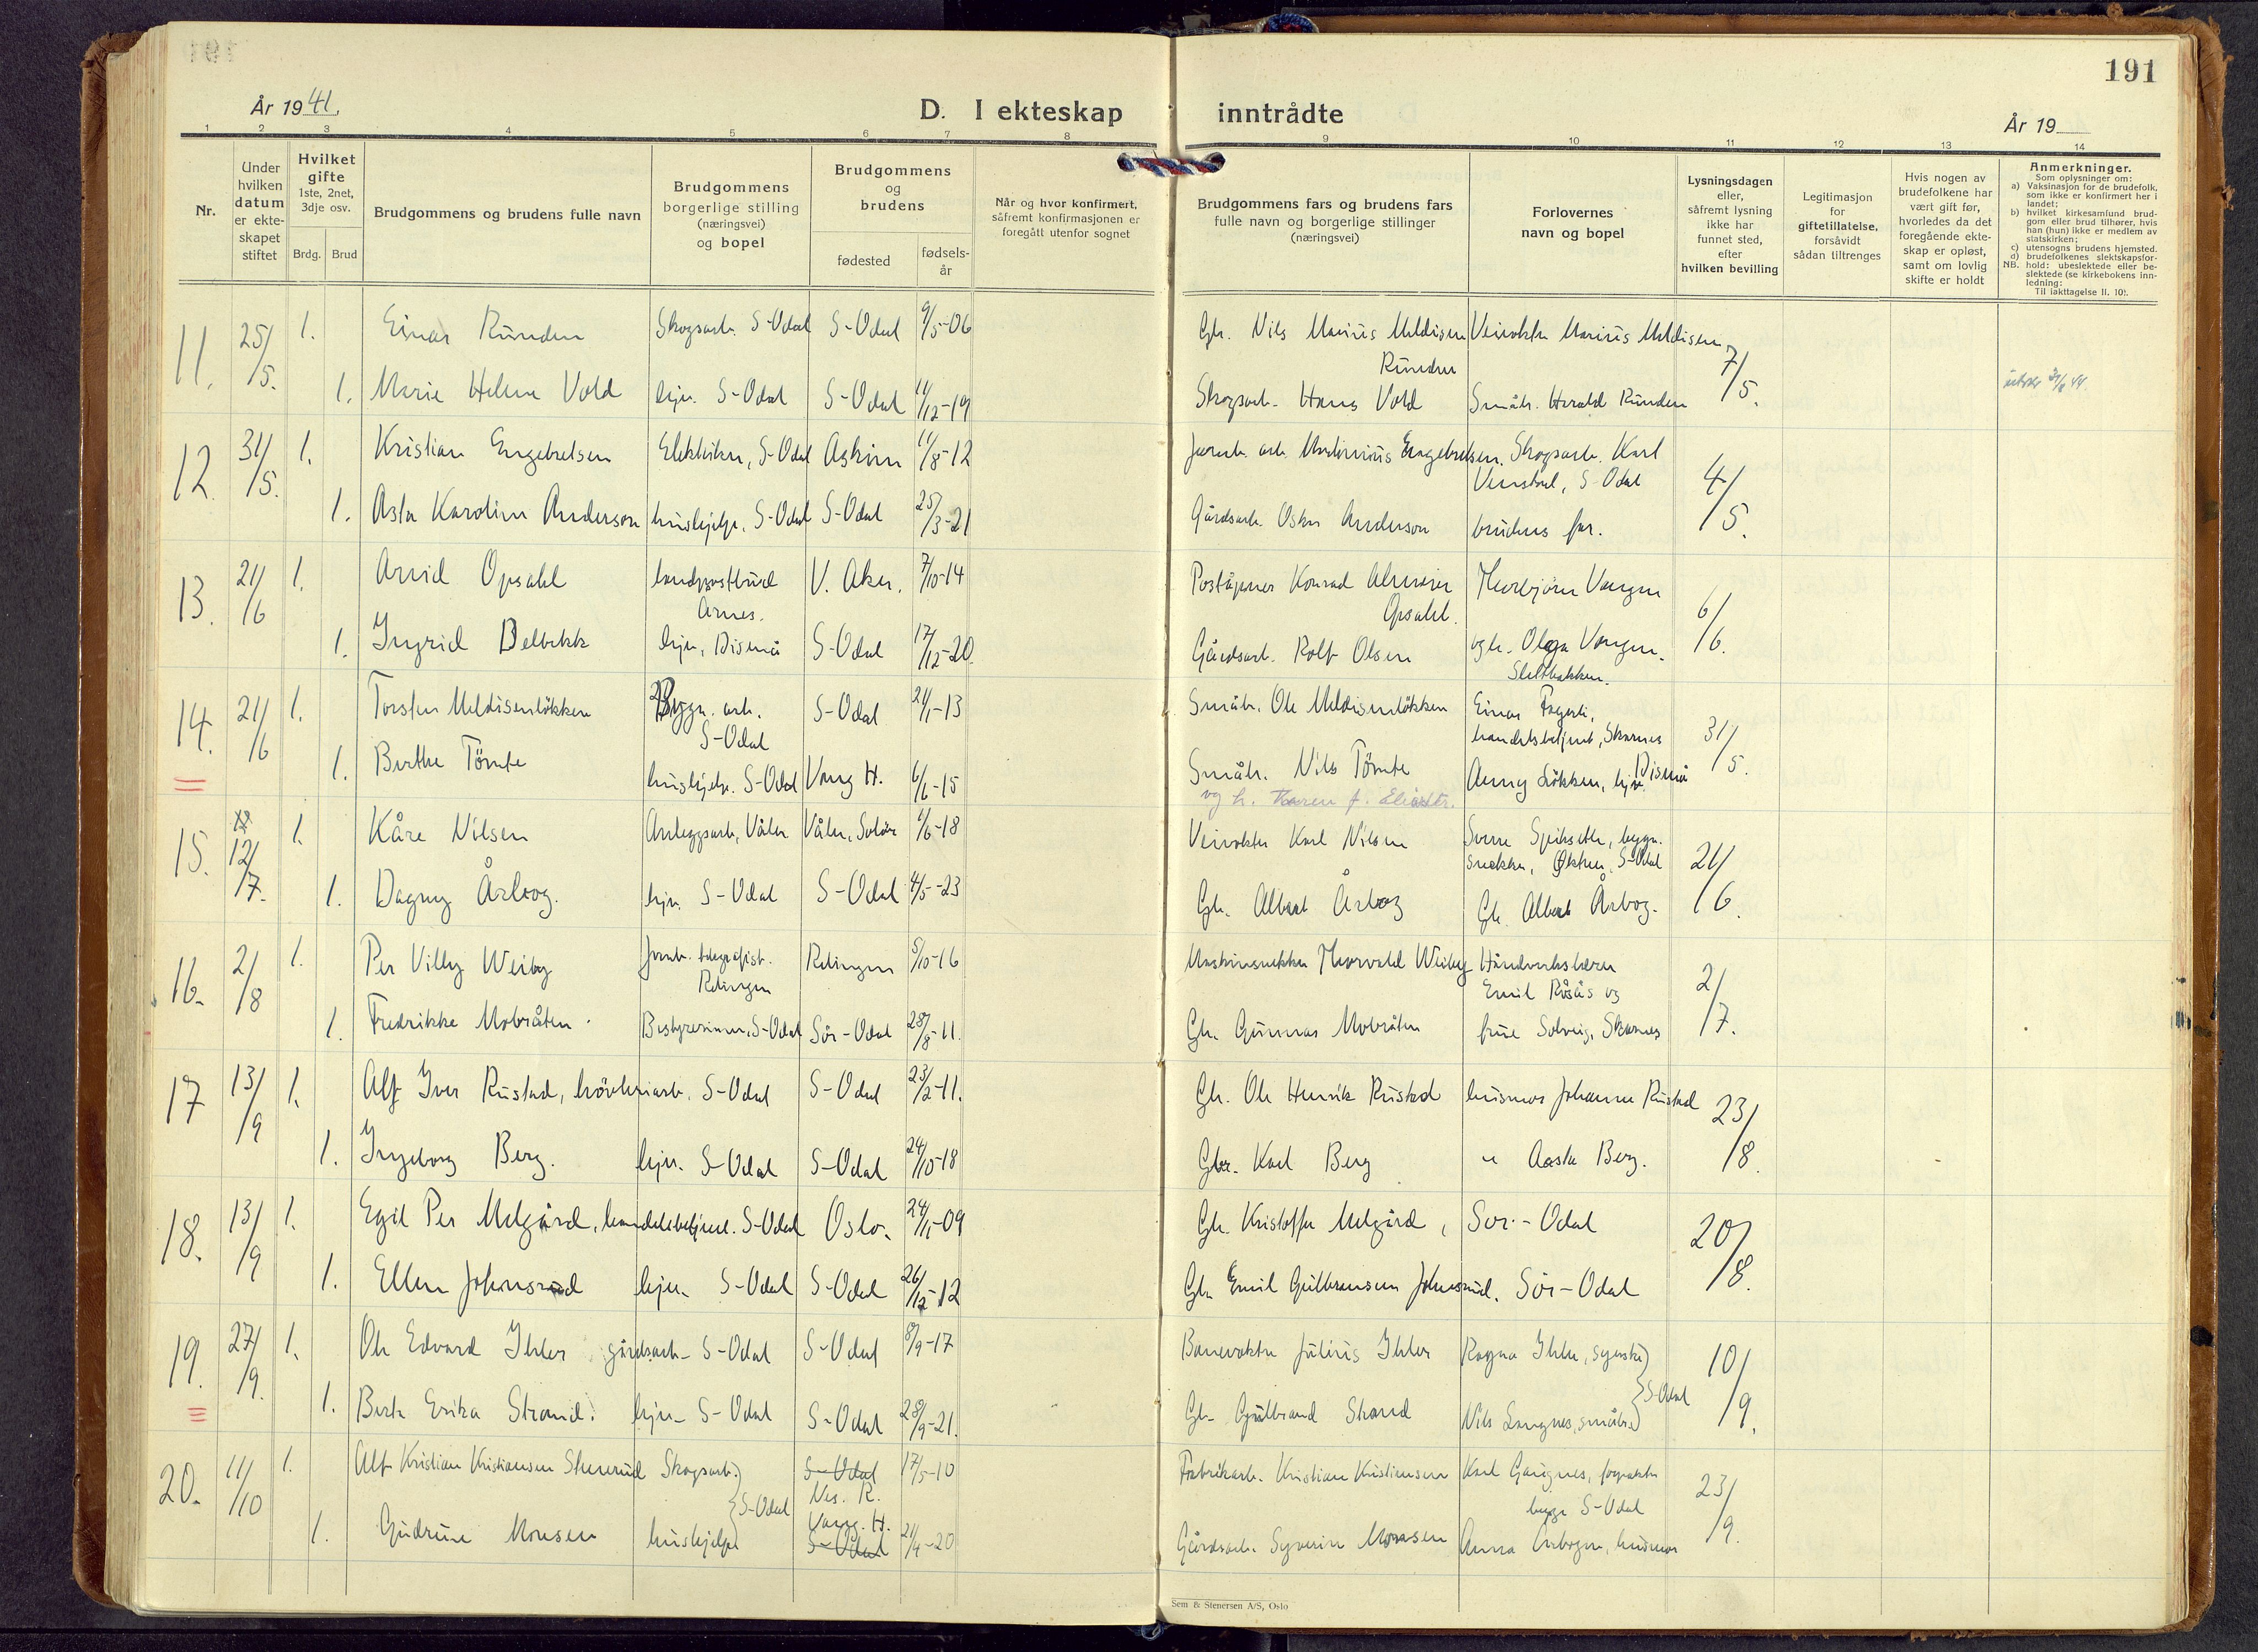 191
År 1941.
D. I ekteskap inntrådte
År 19
1 2 3 4 5 6 7 8 9 10 11 12 13 14
Nr.
Under
hvilken
datum
er ekte-
skapet
stiftet
Hvilket
gifte
1ste, 2net,
3dje osv.
Brdg. Brud
Brudgommens og brudens fulle navn
Brudgommens
borgerlige stilling
(næringsvei)
og bopel
Brudgommens
og
brudens
fødested
fødsels-
år
Når og hvor konfirmert,
såfremt konfirmasjonen er
foregått utenfor sognet
Brudgommens fars og brudens fars
fulle navn og borgerlige stillinger
(næringsvei)
Forlovernes
navn og bopel
Lysningsdagen
eller,
såfremt lysning
ikke har
funnet sted,
efter
hvilken bevilling
Legitimasjon
for
giftetillatelse,
forsåvidt
sådan tiltrenges
Hvis nogen av
brudefolkene har
vært gift før,
hvorledes da det
foregående ekte-
skap er opløst,
samt om lovlig
skifte er holdt
Anmerkninger.
Som oplysninger om:
a) Vaksinasjon for de brudefolk,
som ikke er konfirmert her i
landet;
b) hvilket kirkesamfund brud-
gom eller brud tilhører, hvis
han (hun) ikke er medlem av
statskirken;
c) utensogns brudens hjemsted.
d) brudefolkenes slektskapsfor-
NB. hold: ubeslektede eller be-
slektede (se kirkebokens inn-
ledning:
Til iakttagelse II. 10).
11. 25/5. 1. Einar Runden Skogsarb. S-Odal S-Odal 9/5-06 Gbr. Nils Marius Meldisen Veivokter Marius Meldisen 7/5.
Runden
1. Marie Helene Vold hjv. S-Odal S-Odal 11/12-19 Skogsarb. Hans Vold Småbr. Harald Runden
12. 31/5. 1. Kristian Engebretsen Elektriker, S-Odal Askim 11/8-12 Jernb. arb. Martinius Engebretsen. Skogsarb. Karl 4/5.
Venstad, S-Odal
1. Asta Karoline Anderson hushjelp. S-Odal S-Odal 25/3-21 Gårdsarb. Oskar Anderson brudens far.
13. 21/6 1. Arvid Opsahl landpostbud V. Aker. 7/10-14 Poståpner Konrad Opsahl Thorbjörn Vangen 6/6.
Arnes.
1. Ingrid Delbekk hjv, Disenå S-Odal 17/12-20. Gårdsarb. Rolf Olsen og fr. Olga Vangen.
Slettbakken.
14. 21/6 1. Torsten Meldisenløkken Bygn. arb. S-Odal 21/1-13 Småbr. Ole Meldisenløkken Einar Fagerli, 31/5.
S-Odal handelsbetjent, Skarnes
1. Berthe Tömte hushjelp. S-Odal Vang H. 6/6-15 Småbr. Nils Tömte Anny Løkken, hjv. Disenå
og h. Karen f. Eliasdtr.
15. 12/7. 1. Kåre Nilsen Anleggsarb, Våler Våler, Solör 1/6-18 Veivokter Karl Nilsen Sverre Spikseth, bygn. 21/6.
snekker, S-Odal
1. Dagny Årbog. hjv. S-Odal S-Odal 4/5-23 Gbr. Albert Årbog Gbr. Albert Årbog.
16. 2/8 1. Per Villy Weiby Jernb. telegrafist. Relingen 5/10-16 Maskinsnekker Thorvald Weiby Håndverkslærer 2/7.
Relingen Emil Röås og
1. Fredrikke Mobråten. Bestyrerinne, S-Odal Sör-Odal 28/8-11. Gbr. Gunnar Mobråten frue Solveig, Skarnes
17 13/9 1. Alf Iver Rustad, hövleriarb. S-Odal S-Odal 23/2-11. Gbr. Ole Henrik Rustad husmor Johanne Rustad 23/8.
1. Ingeborg Berg. hjv. S-Odal S-Odal 24/10-18 Gbr. Karl Berg " Aasta Berg.
18. 13/9 1. Egil Per Melgård, handelsbetjent. S-Odal Oslo. 24/1-09 Gbr. Kristoffer Melgård, Sör-Odal 20/8.
1. Ellen Johnsrud hjv. S-Odal S-Odal 26/12-12 Gbr. Emil Gulbransen Johnsrud. Sör-Odal
19. 27/9. 1. Ole Edvard Ihler gårdsarb. S-Odal S-Odal 8/9-17 Banevokter Julius Ihler Ragna Ihler, syerske 10/9.
S-Odal
1. Berte Erika Strand. hjv. S-Odal S-Odal 28/9-21. Gbr. Gulbrand Strand Nils Langnes, småbr.
20. 11/10 1. Alf Kristian Kristiansen Stenerud Skogsarb. S-Odal 17/5-10 Fabrikarb. Kristian Kristiansen Karl Gaugnes, 23/9.
Nes. R.
S-Odal begge S-Odal
Vang. H.
1. Gudrun Monsen hushjelp S-Odal 21/4-20 Gårdsarb. Syverin Monsen Anna husmor
Sem & Stenersen A/S, Oslo